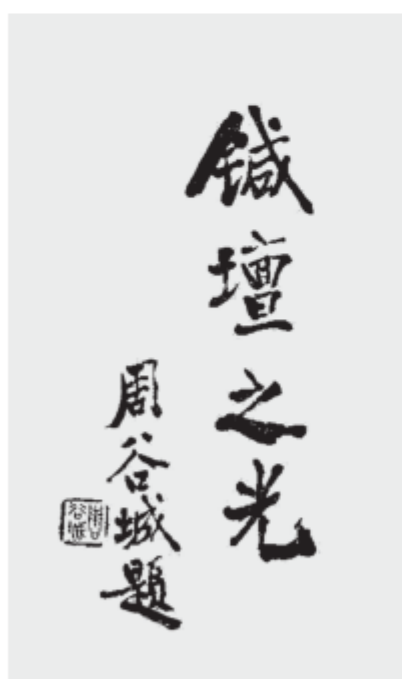 鍼壇之光
周谷城題
周谷城